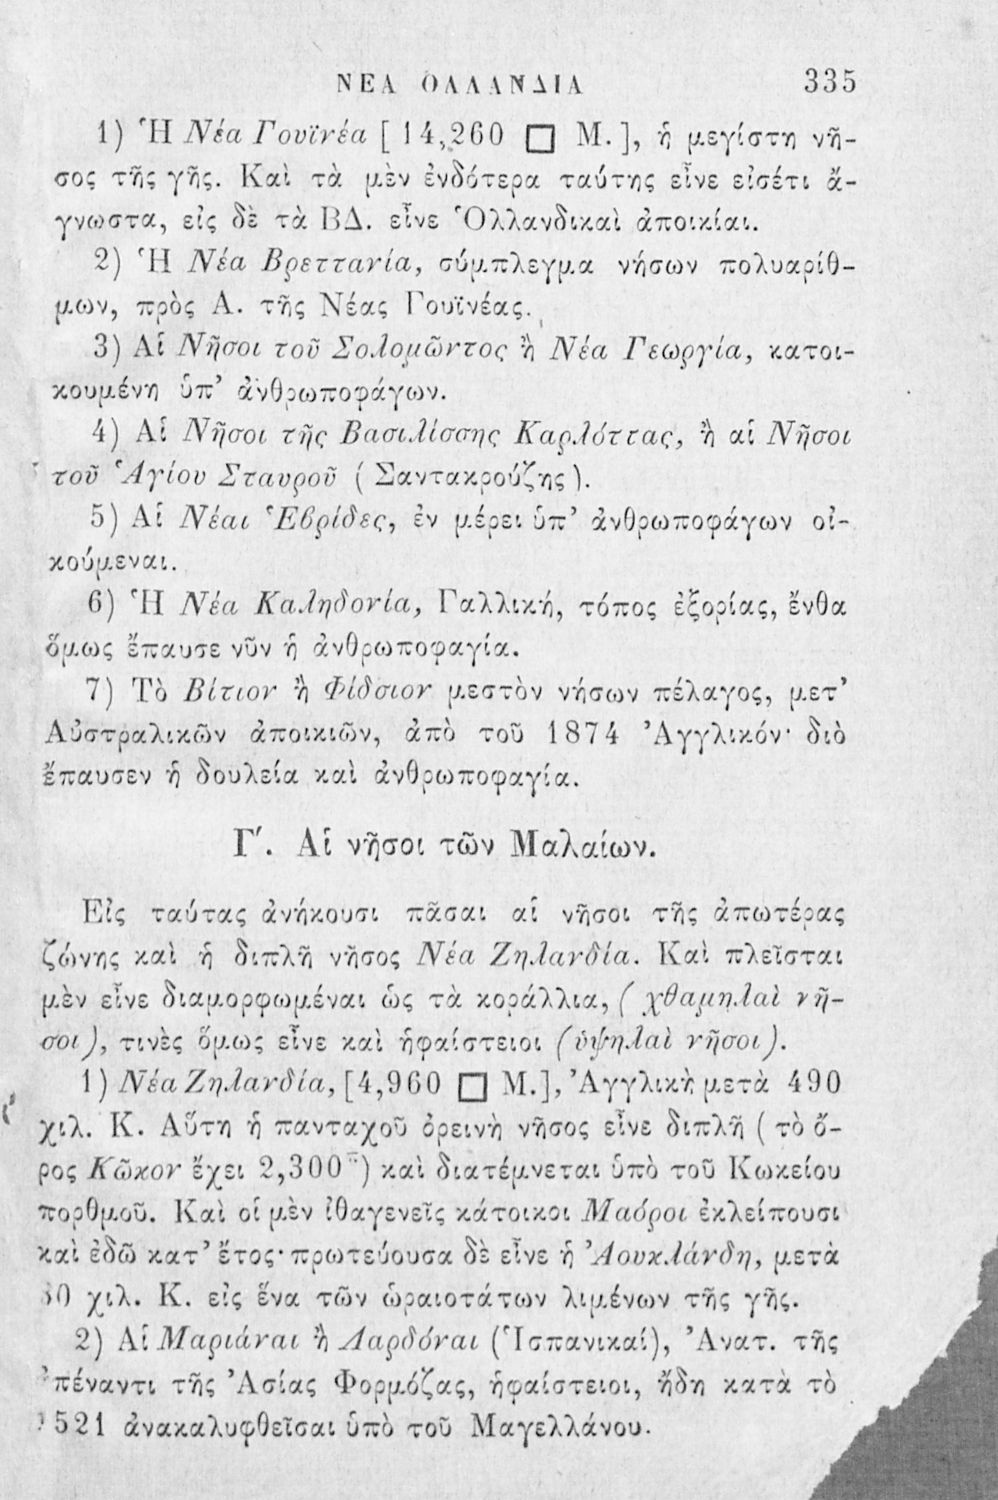 ΝΕΑ ΟΛΛΑΝΔΙΑ 335
1) Ἡ Νέα Γουϊνέα [14,260 □ Μ.], ἡ μεγίστη νῆ-
σος τῆς γῆς. Καὶ τὰ μὲν ἐνδότερα ταύτης εἶνε εἰσέτι ἄ-
γνωστα, εἰς δὲ τὰ ΒΔ. εἶνε Ὁλλανδικαὶ ἀποικίαι.
2) Ἡ Νέα Βρεττανία, σύμπλεγμα νήσων πολυαρίθ-
μων, πρὸς Α. τῆς Νέας Γουϊνέας.
3) Αἱ Νῆσοι τοῦ Σολομῶντος ἢ Νέα Γεωργία, κατοι-
κουμένη ὑπ’ ἀνθρωποφάγων.
4) Αἱ Νῆσοι τῆς Βασιλίσσης Καρλόττας, ἢ αἱ Νῆσοι
τοῦ Ἁγίου Σταυροῦ (Σαντακρούζης).
5) Αἱ Νέαι Ἑβρίδες, ἐν μέρει ὑπ’ ἀνθρωποφάγων οἰ-
κούμεναι.
6) Ἡ Νέα Καληδονία, Γαλλική, τόπος ἐξορίας, ἔνθα
ὅμως ἔπαυσε νῦν ἡ ἀνθρωποφαγία.
7) Τὸ Βίτιον ἢ Φίδσιον μεστὸν νήσων πέλαγος, μετ’
Αὐστραλικῶν ἀποικιῶν, ἀπὸ τοῦ 1874 Ἀγγλικόν· διὸ
ἔπαυσεν ἡ δουλεία καὶ ἀνθρωποφαγία.
Γ΄. Αἱ νῆσοι τῶν Μαλαίων.
Εἰς ταύτας ἀνήκουσι πᾶσαι αἱ νῆσοι τῆς ἀπωτέρας
ζώνης καὶ ἡ διπλῆ νῆσος Νέα Ζηλανδία. Καὶ πλεῖσται
μὲν εἶνε διαμορφωμέναι ὡς τὰ κοράλλια, (χθαμηλαὶ νῆ-
σοι), τινὲς ὅμως εἶνε καὶ ἡφαίστειοι (ὑψηλαὶ νῆσοι).
1) Νέα Ζηλανδία, [4,960 □ Μ.], Ἀγγλικὴ μετὰ 490
χιλ. Κ. Αὕτη ἡ πανταχοῦ ὀρεινὴ νῆσος εἶνε διπλῆ (τὸ ὄ-
ρος Κῶκον ἔχει 2,300) καὶ διατέμνεται ὑπὸ τοῦ Κωκείου
πορθμοῦ. Καὶ οἱ μὲν ἰθαγενεῖς κάτοικοι Μαόροι ἐκλείπουσι
καὶ ἐδῶ κατ’ ἔτος· πρωτεύουσα δὲ εἶνε ἡ Ἀουκλάνδη, μετὰ
χιλ. Κ. εἰς ἕνα τῶν ὡραιοτάτων λιμένων τῆς γῆς.
2) Αἱ Μαριάναι ἢ Λαρδόναι (Ἱσπανικαί), Ἀνατ. τῆς
ἀπέναντι τῆς Ἀσίας Φορμόζας, ἡφαίστειοι, ἤδη κατὰ τὸ
1521 ἀνακαλυφθεῖσαι ὑπὸ τοῦ Μαγελλάνου.